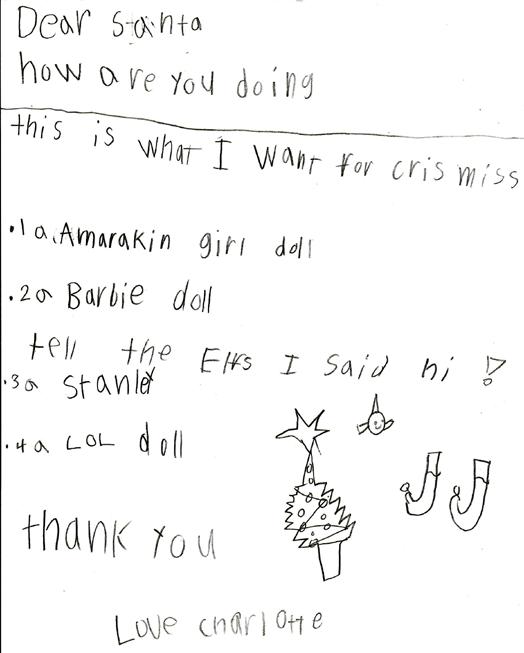 Dear Santa
how are you doing
this is what I want for cris miss
.1 a Amarakin girl doll
.2 a Barbie doll
tell the Elfs I said hi !
.3 a Stanley
.4 a LOL doll
thank you
Love charlotte